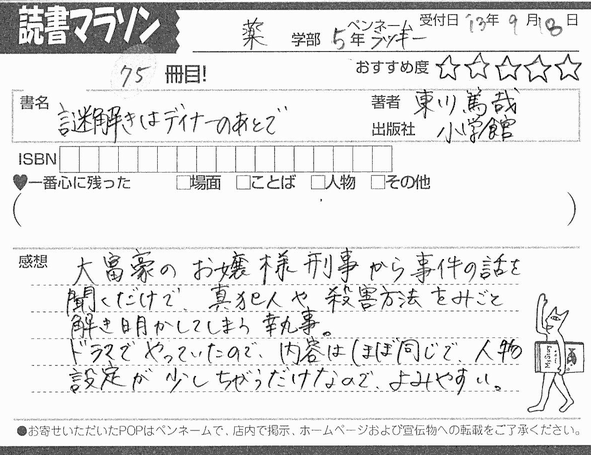 読書マラソン
薬 学部 5年 ペンネーム ラッキー 受付日 '13年 9月 18日
75 冊目! おすすめ度 ☆☆☆☆☆
書名 謎解きはディナーのあとで 著者 東川篤哉
出版社 小学館
ISBN
♥一番心に残った □場面 □ことば □人物 □その他
( )
感想 大富豪のお嬢様刑事から事件の話を
聞くだけで、真犯人や殺害方法をみごと
解き明かしてしまう執事。
ドラマでやっていたので、内容はほぼ同じで、人物
設定が少しちがうだけなので、よみやすい。
●お寄せいただいたPOPはペンネームで、店内で掲示、ホームページおよび宣伝物への転載をご了承ください。